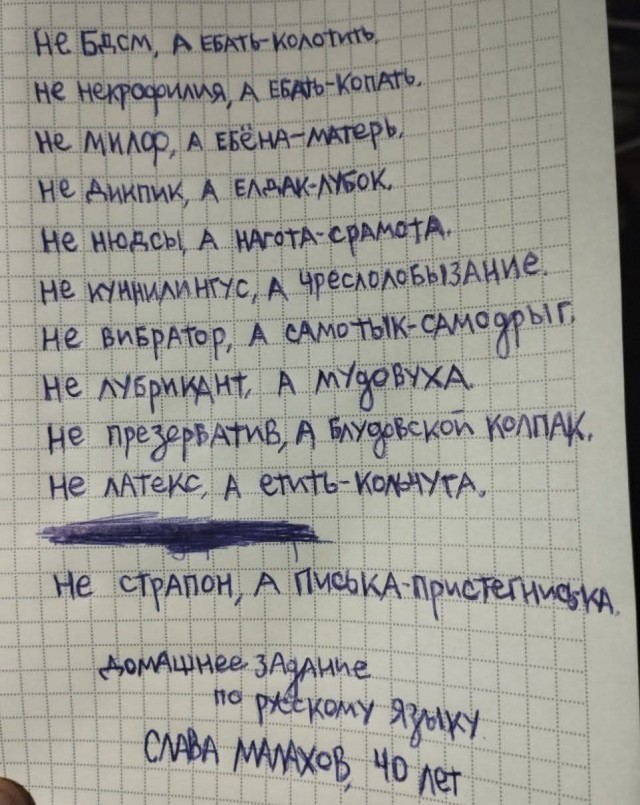 Не БДСМ, А ЕБАТЬ-КОЛОТИТЬ.
Не некрофилия, А ЕБАТЬ-КОПАТЬ.
Не МИЛФ, А ЕБЁНА-МАТЕРЬ.
Не Дикпик, А ЕЛДАК-ЛУБОК.
Не НЮДСЫ, А НАГОТА-СРАМОТА.
Не КУННИЛИНГУС, А Чреслолобызание.
Не вибратор, А САМОТЫК-САМОДРЫГ.
Не ЛУБРИКАНТ, А МУДОВУХА.
Не презерватив, А Блудовской колпак.
Не ЛАТЕКС, А етить-Кольчуга.
Не СТРАПОН, А ПИСЬКА-ПРИСТЕГНИСЬКА.
Домашнее задание
по русскому языку.
СЛАВА МАЛАХОВ, 40 лет